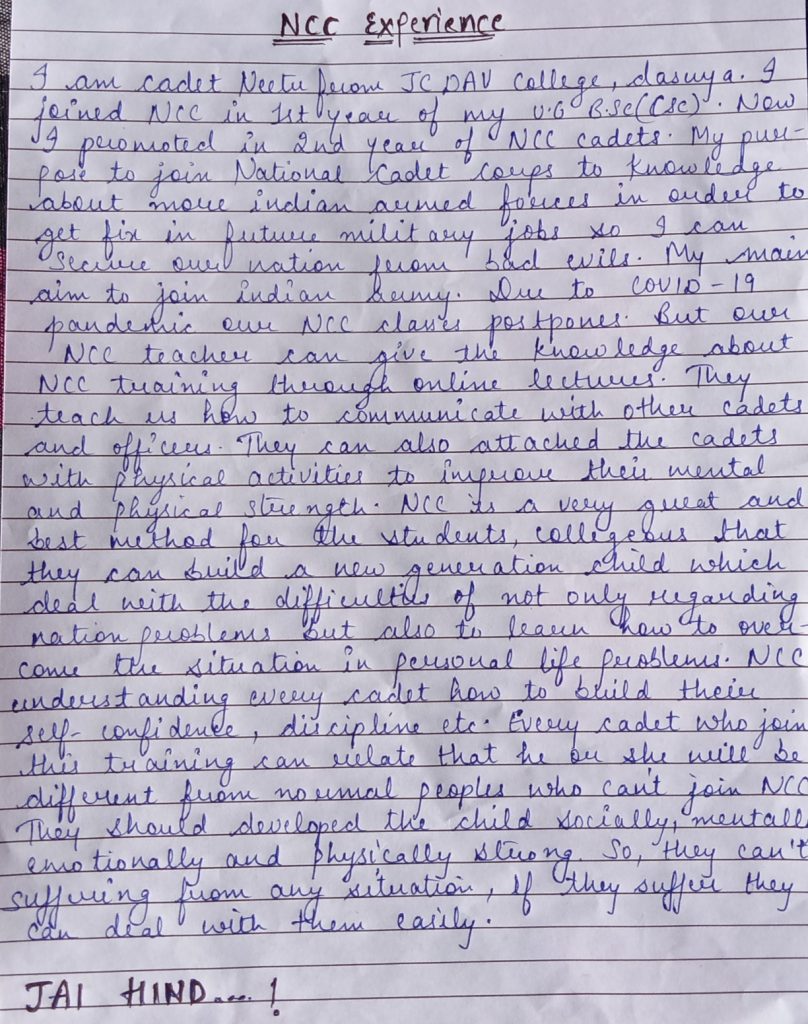 NCC Experience
I am cadet Neetu from JC DAV College, dasuya. I
joined NCC in 1st year of my U.G B.Sc(CSC). Now
I promoted in 2nd year of NCC cadets. My pur-
pose to join National Cadet Corps to knowledge
about more indian armed forces in order to
get fix in future military jobs so I can
secure our nation from bad evils. My main
aim to join indian Army. Due to COVID-19
pandemic our NCC classes postpones. But our
NCC teacher can give the knowledge about
NCC training through online lectures. They
teach us how to communicate with other cadets
and officers. They can also attached the cadets
with physical activities to improve their mental
and physical strength. NCC is a very great and
best method for the students, collegeous that
they can build a new generation child which
deal with the difficulties of not only regarding
nation problems but also to learn how to over-
come the situation in personal life problems. NCC
understanding every cadet how to build their
self-confidence, discipline etc. Every cadet who join
this training can relate that he or she will be
different from normal peoples who can't join NCC
They should developed the child socially, mentall
emotionally and physically strong. So, they can't
suffering from any situation, if they suffer they
can deal with them easily.
JAI HIND....!